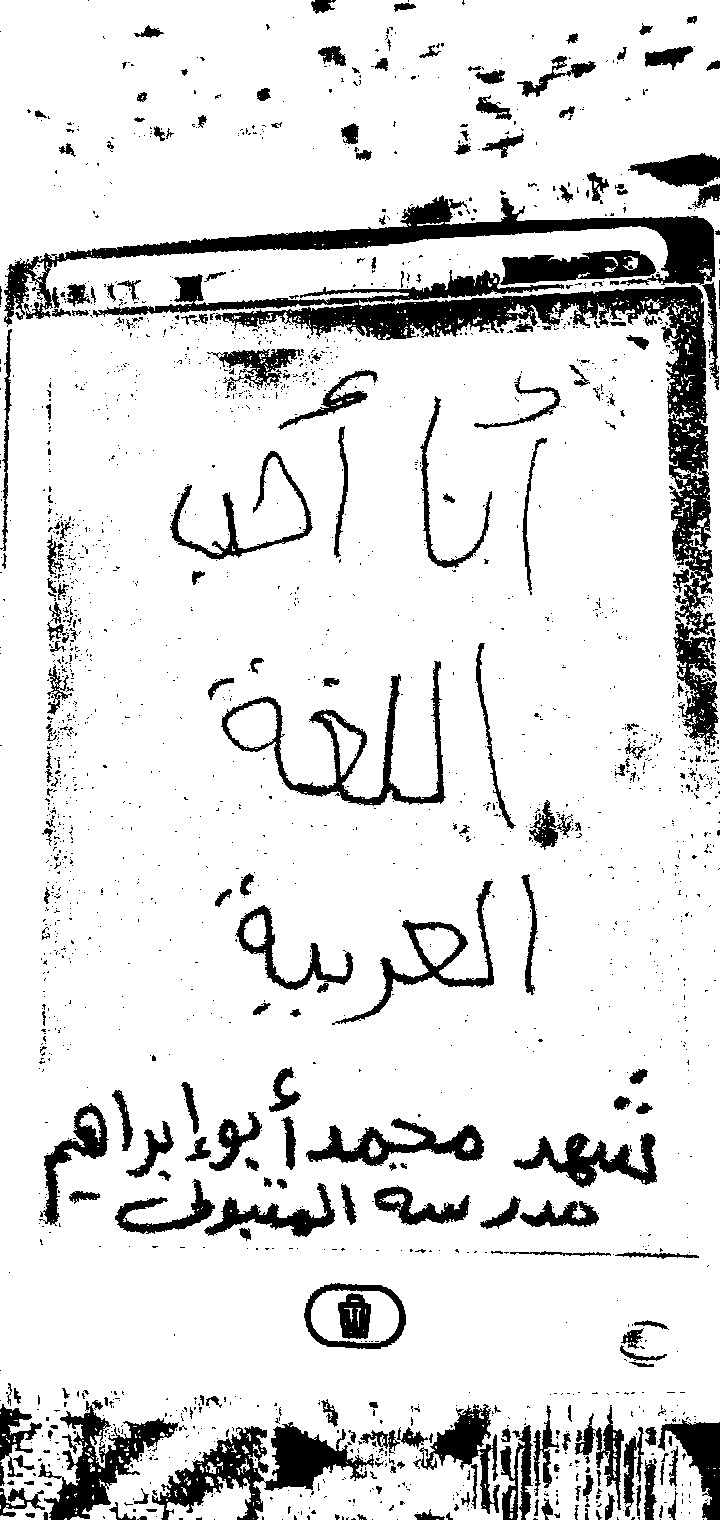 أنا أحب
اللغة
العربية
شهد محمد أبو إبراهيم
مدرسه المتبولى